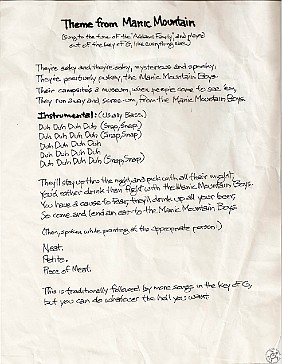 Theme from Manic Mountain
(Sung to the tune of the "Addams Family", and played
out of the key of G, like everything else.)
They're ooky and they're kooky, mysterious and spooky,
They're positively pukey, the Manic Mountain Boys.
Their campsite's a museum, when people come to see 'em,
They run away and scree-um, from the Manic Mountain Boys.
Instrumental: (Usually Bass)
Duh Duh Duh Duh (Snap, Snap)
Duh Duh Duh Duh (Snap, Snap)
Duh Duh Duh Duh
Duh Duh Duh Duh
Duh Duh Duh Duh (Snap, Snap)
They'll stay up thru the night, and pick with all their might,
You'd rather drink than fight with the Manic Mountain Boys.
You have a cause to fear, they'll drink up all your beer,
So come and lend an ear to the Manic Mountain Boys.
(Then, spoken while pointing at the appropriate person:)
Neat.
Petite.
Piece of Meat.
This is traditionally followed by more songs in the key of G,
but you can do whatever the hell you want.